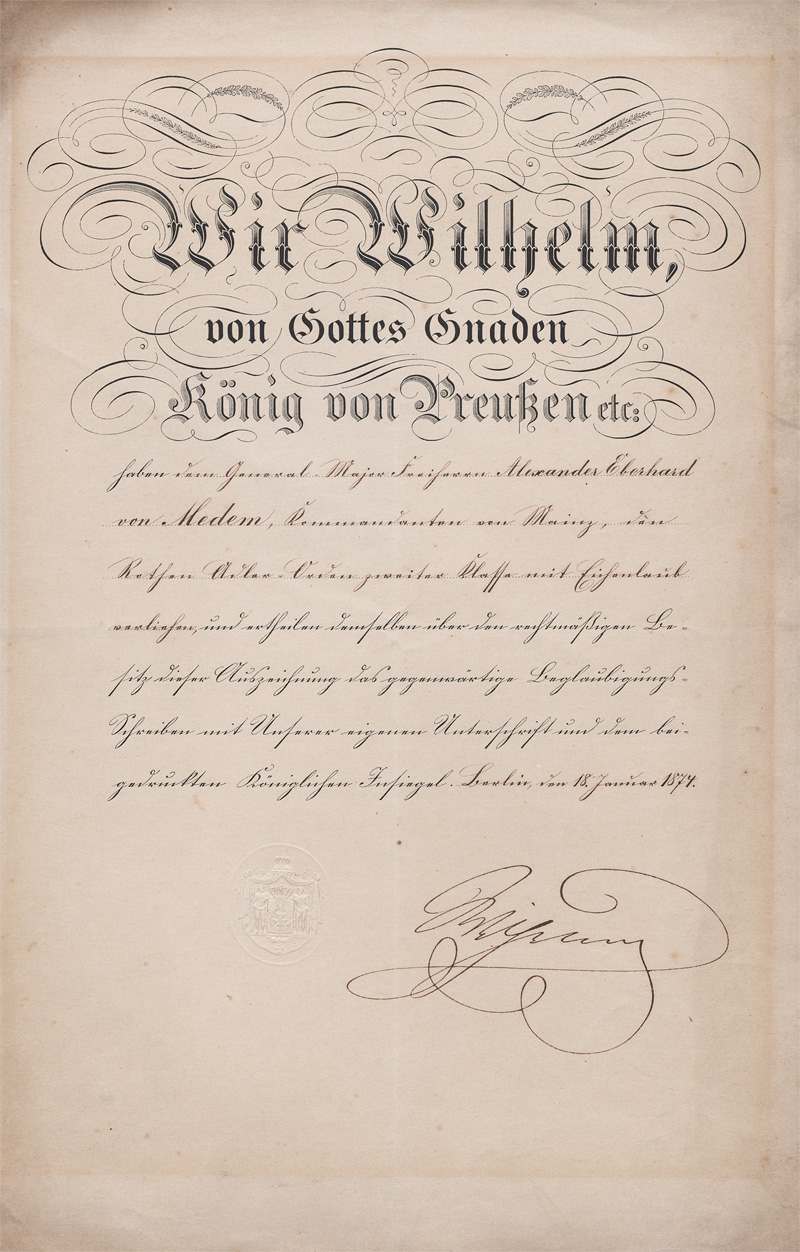 Wir Wilhelm,
von Gottes Gnaden
König von Preußen etc:
haben dem General-Major Freiherrn Alexander Eberhard
von Medem, Kommandanten von Mainz, den
Rothen Adler-Orden zweiter Klasse mit Eichenlaub
verliehen, und ertheilen demselben über den rechtmäßigen Be-
sitz dieser Auszeichnung das gegenwärtige Beglaubigungs-
Schreiben mit Unserer eigenen Unterschrift und dem bei-
gedruckten Königlichen Insiegel. Berlin, den 18. Januar 1874.
Wilhelm